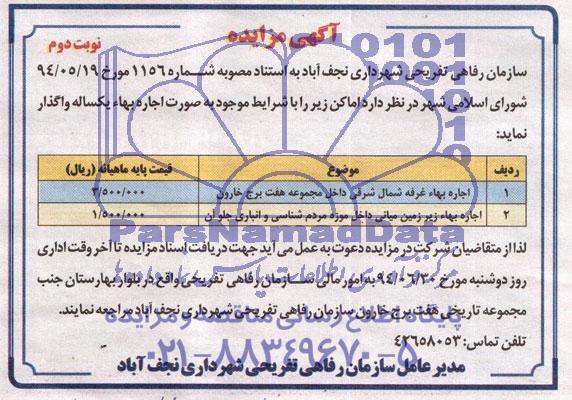 آگهی مزایده
نوبت دوم
سازمان رفاهی تفریحی شهرداری نجف آباد به استناد مصوبه شماره ۱۱۵۶ مورخ ۹۴/۰۵/۱۹
شورای اسلامی شهر در نظر دارد اماکن زیر را با شرایط موجود به صورت اجاره بهاء یکساله واگذار
نماید:
ردیف موضوع قیمت پایه ماهیانه (ریال)
۱ اجاره بهاء غرفه شمال شرقی داخل مجموعه هفت برج خارون ۳/۵۰۰/۰۰۰
۲ اجاره بهاء زیر زمین میانی داخل موزه مردم شناسی و انباری جلو آن ۱/۵۰۰/۰۰۰
لذا از متقاضیان شرکت در مزایده دعوت به عمل می آید جهت دریافت اسناد مزایده تا آخر وقت اداری
روز دوشنبه مورخ ۹۴/۰۶/۳۰ به امور مالی سازمان رفاهی تفریحی واقع در بلوار بهارستان جنب
مجموعه تاریخی هفت برج خارون سازمان رفاهی تفریحی شهرداری نجف آباد مراجعه نمایند.
تلفن تماس: ۴۲۶۵۸۰۵۳
مدیر عامل سازمان رفاهی تفریحی شهرداری نجف آباد
0101
0001
10
1
0
ParsNamadData
پایگاه اطلاع رسانی مناقصه و مزایده
۰۲۱-۸۸۳۴۹۶۷۰-۵